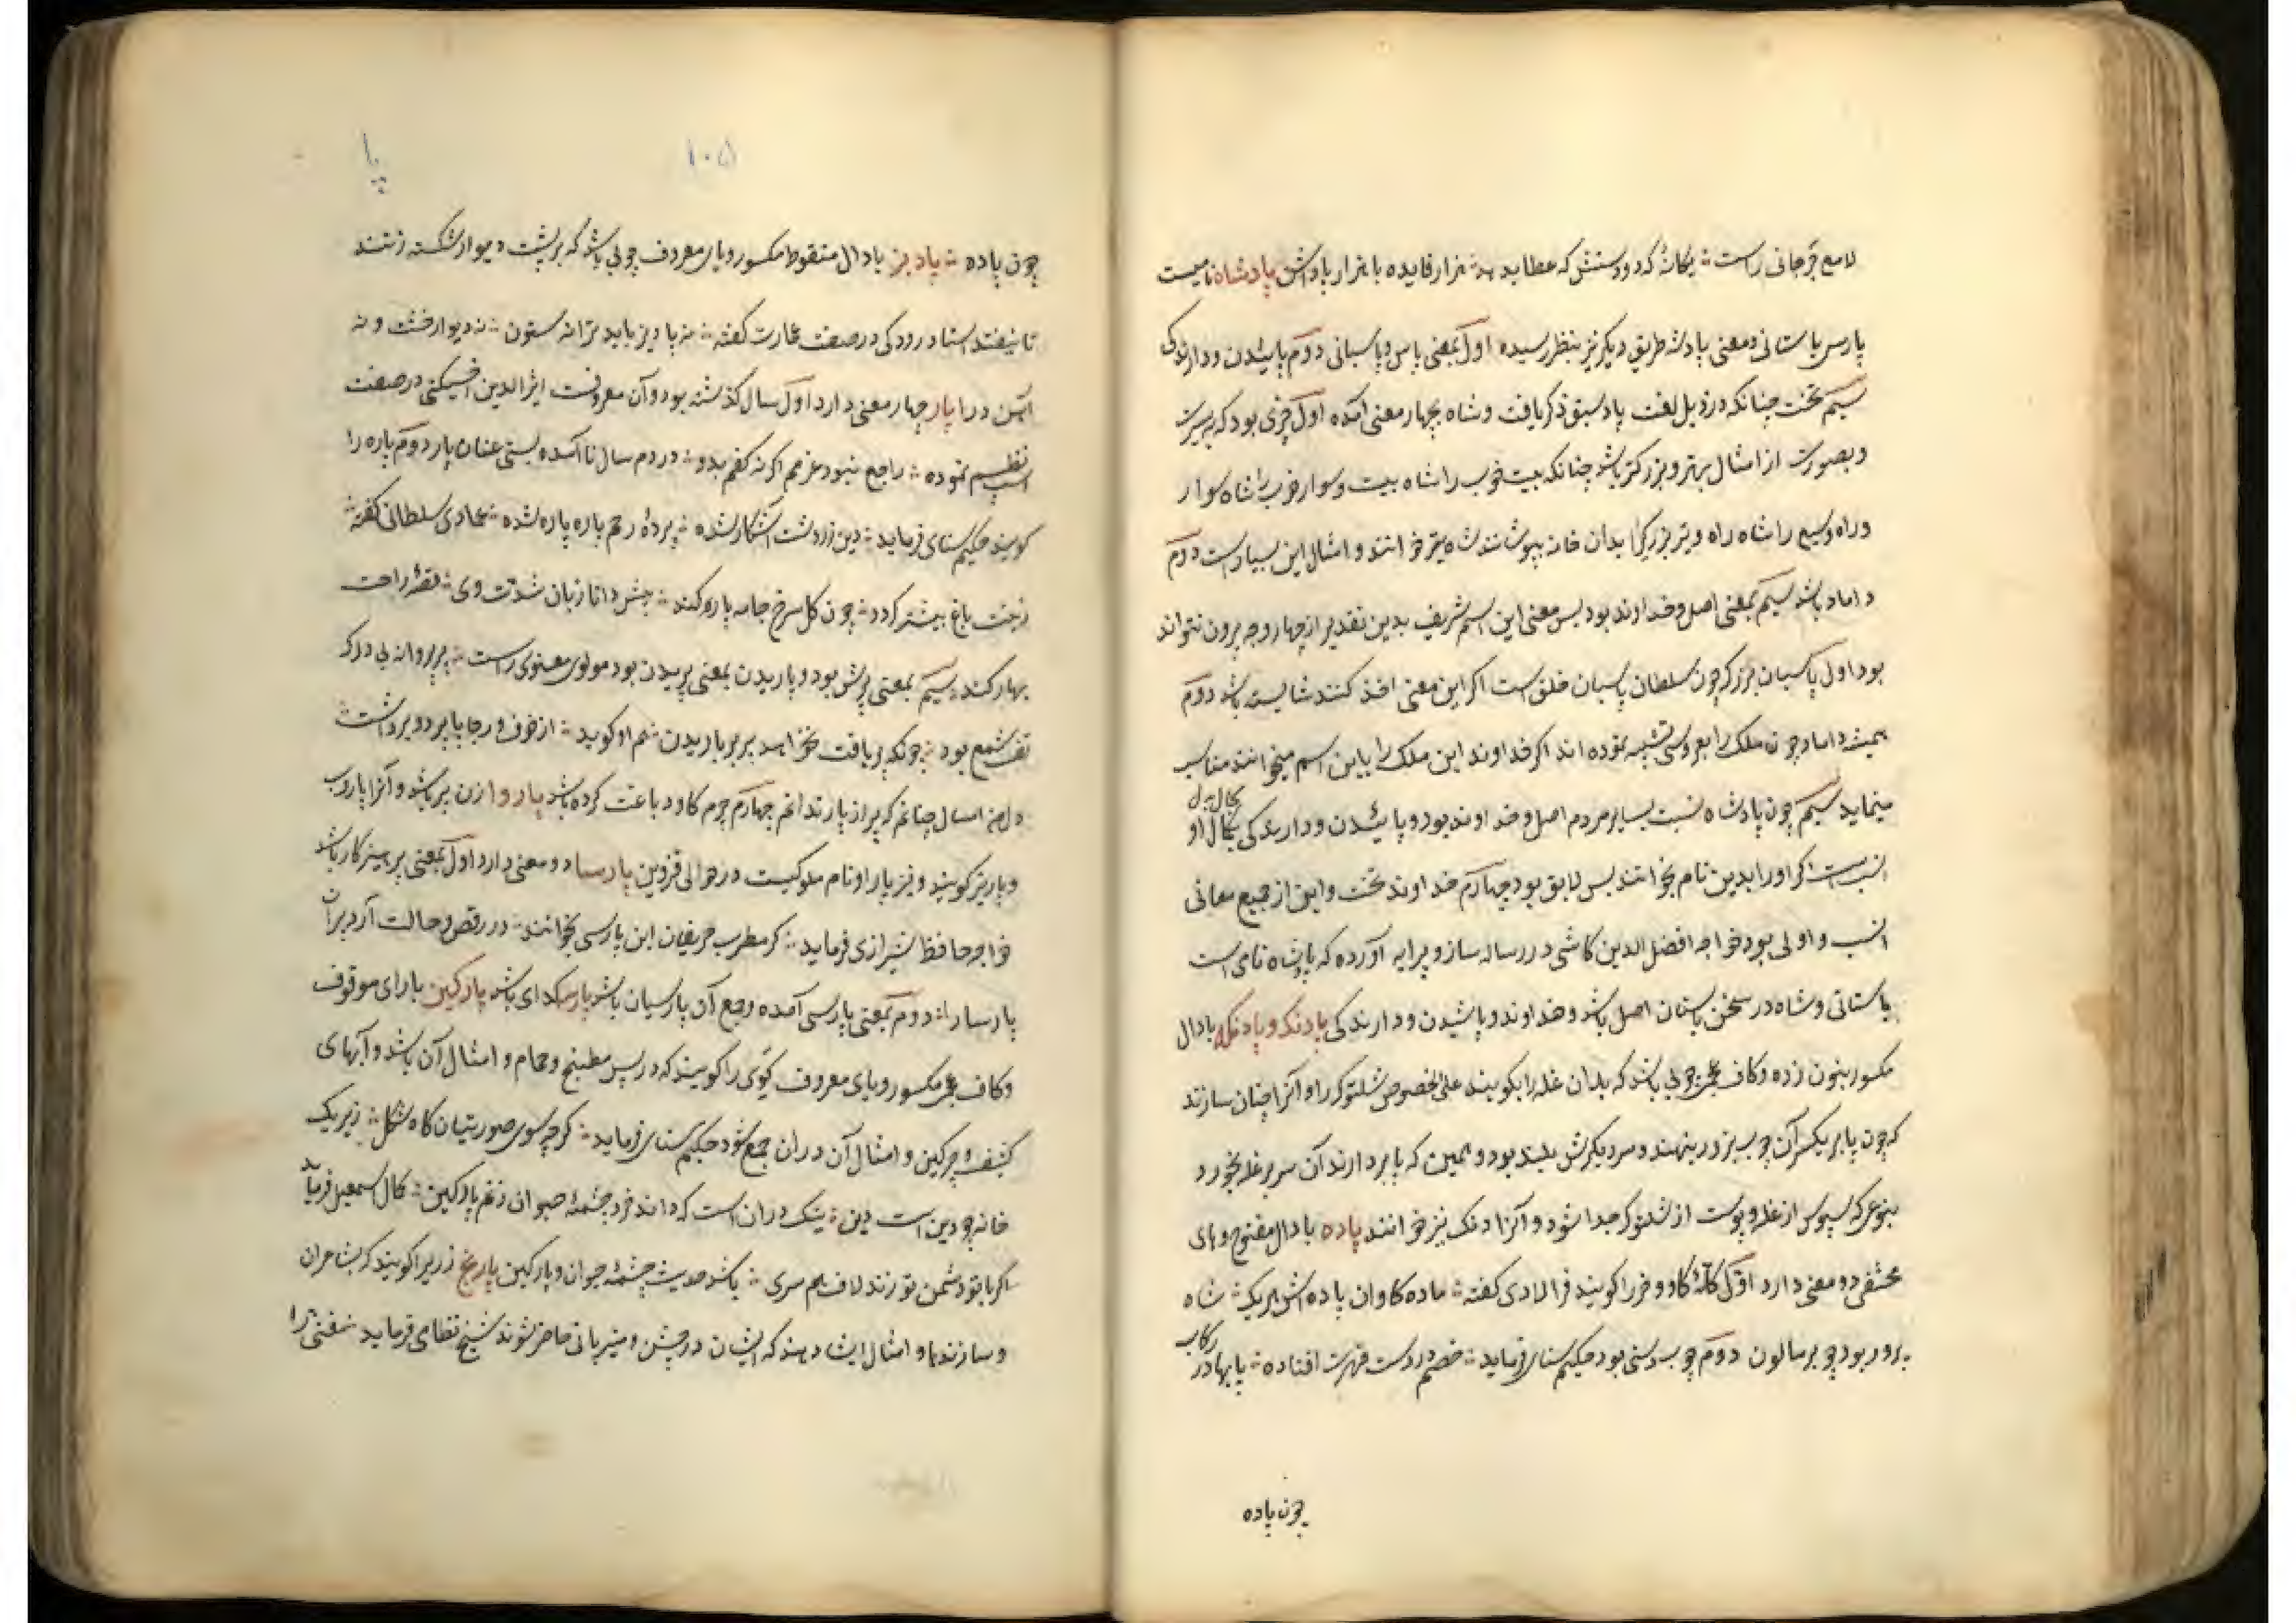 لامع جرجانی راست ∴ یگانهٔ که دو دستش که عطا بدهد ∴ هزار فایده با هزار پاداش پادشاه نامیست
پارسی باستانی و معنی پادشه طریق دیگر نیز بنظر رسیده اول بمعنی پاس و پاسبانی دوم پائیدن و دارندگی
سیم تخت چنانکه در ذیل لغت پاد سبق ذکر یافت و شاه بچهار معنی آمده اول چیزی بود که به سیرت
و بصورت از امثال بهتر و بزرگتر باشد چنانکه بیت خوب را شاه بیت و سوار خوب را شاه سوار
و راه وسیع را شاه راه و تیر بزرگیرا بدان خانه بپوشانند شاه تیر خوانند و امثال این بسیار است دوم
داماد باشد سیم بمعنی اصل و خداوند بود پس معنی این اسم شریف بدین تقدیر از چهار وجه بیرون نتواند
بود اول پاسبان بزرگ چون سلطان پاسبان خلق است اگر این معنی اخذ کنند شایسته باشد دوم
همیشه داماد چون ملک را بعروسی تشبیه نموده اند اگر خداوند این ملک را باین اسم میخوانند مناسب
مینماید سیم چون پادشاه نسبت بسایر مردم اصل و خداوند بود و پائیدن و دارندگی بحال او
انسب است اگر او را بدین نام بخوانند بس لایق بود چهارم خداوند تخت و این از جمیع معانی
انسب و اولی بود خواجه افضل الدین کاشی در رساله ساز و پیرایه آورده که پادشاه نامی است
باستانی و شاه در سخن باستان اصل باشد و خداوند و پائیدن و دارندگی پادنگ و پادنگه با دال
مکسور بنون زده و کاف عجمی چوبی باشد که بدان غله را بکوبند علی الخصوص شلتوک را و آنرا چنان سازند
که چون پا بر یکسر آن چوب بزور بنهند و سر دیگرش بلند بود و همین که پا بردارند آن سر بر غله بخورد
بنوعی که سپوس از غله و پوست از شلتوک جدا شود و آنرا دنگ نیز خوانند پاده با دال مفتوح و های
مختفی دو معنی دارد اول گلهٔ گاو و خر را گویند فرالادی گفته ∴ ماده گاوان پاده اش هریک ∴ شاه
پرور بود چو برمایون دوم چوب دستی بود حکیم سنائی فرماید ∴ خصم در دست قهرت افتاده ∴ پا بها در رکاب
چون پاده
۱۰۵
پا
چون پاده ∴ پادیز با دال منقوط مکسور و یای معروف چوبی باشد که بر پشت دیوار شکسته زنند
تا نیفتد استاد رودکی در صفت عمارت گفته ∴ نه پادیز باید ترا نه ستون ∴ نه دیوار خشت و نه
آهن درا پار چهار معنی دارد اول سال گذشته بود و آن معروفست اثیرالدین اخسیکتی در صفت
اسب نظم نموده ∴ راجع نبود عزمم اگر نه کفم بدو ∴ در دم سال نا آمده بستی عنان پار دوم پاره را
گویند حکیم سنای فرماید ∴ دین زردشت آشکار شده ∴ پردهٔ رحم پاره پاره شده ∴ عمادی سلطانی گفته ∴
زینت باغ بیشتر گردد ∴ چون گل سرخ جامه پاره کند ∴
بهار کند ∴ سیم بمعنی پرش بود و پاریدن بمعنی پریدن بود مولوی معنوی راست ∴ پر پروانه پی درک
تف شمع بود ∴ چونکه دریافت نخواهد پر پر پاریدن ∴ هم او گوید ∴ از خوف و رجا پار دو پر داشت
دل من امسال چنانم که پر از پار ندانم چهارم چرم گاو دباغت کرده باشد پاروا زن پیر باشد و آنرا پاروب
و پاریز گویند و نیز پاراو نام ملوکیست در حوالی قزوین پارسا دو معنی دارد اول بمعنی پرهیزکار باشد
خواجه حافظ شیرازی فرماید ∴ گر مطرب حریفان این پارسی بخوانند ∴ در رقص و حالت آرد پیران
پارسا را ∴ دوم بمعنی پارسی آمده و جمع آن پارسیان باشد پارسه گدای باشد پارگین با رای موقوف
و کاف عجمی مکسور و یای معروف گوی را گویند که در پس مطبخ و حمام و امثال آن باشد و آبهای
کثیف و چرکین و امثال آن در آن جمع شود حکیم سنای فرماید ∴ گرچه سوی صورتیان گاه شکل ∴ زیر یک
خانه چو دین است دین ∴ نیک در آن است که داند خرد چشمهٔ حیوان ز نم پارگین ∴ کمال اسمعیل فرماید
اگر با تو دشمن تو زند لاف همسری ∴ باشد حدیث چشمهٔ حیوان و پارگین پارنج زریرا گویند که بشاعران
و سازندها و امثال ایشان دهند که ایشان در جشن و میزبانی حاضر شوند شیخ نظامی فرماید